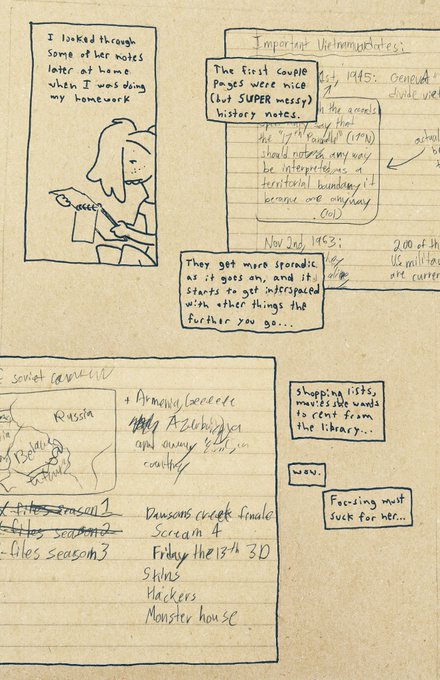 I looked through
some of her notes
later at home
when I was doing
my homework
Important Vietnam dates:
The first couple
pages were nice
(but SUPER messy)
history notes.
1st, 1945:
Geneva
divide viet
in the
say that
the "17th Parallel" (17°N)
should not in any way
be interpreted as a
territorial boundary it
became one anyway
(lol)
Nov 2nd, 1963:
200 of th
US milita
are curren
They get more sporadic
as it goes on, and it
starts to get interspaced
with other things the
further you go...
soviet
Russia
Belarus
+ Armenia,
Azerbaijan
country
shopping lists,
movies she wants
to rent from
the library...
wow.
Focusing must
suck for her...
files season 1
files season 2
-files season 3
Dawsons creek finale
Scream 4
Friday the 13th 3D
Skins
Hackers
Monster house